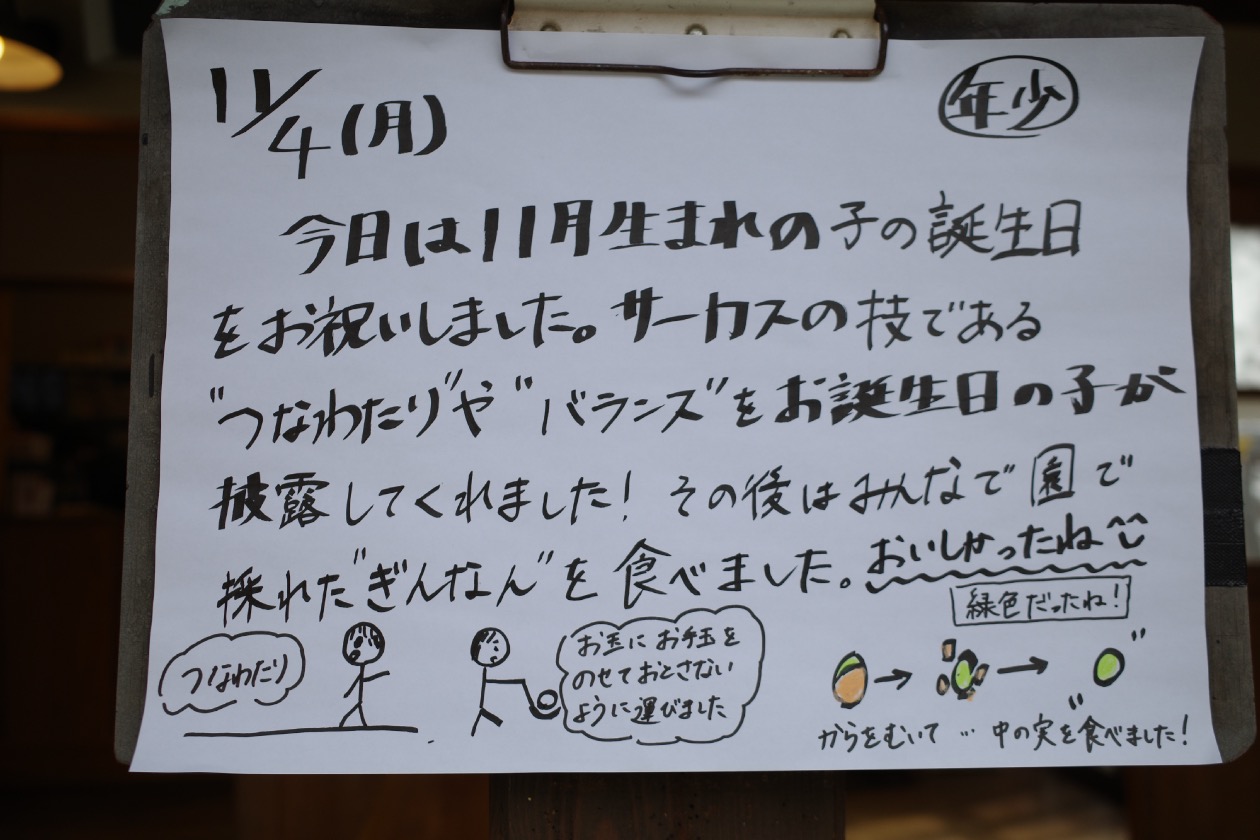 11/4(月)
年少
今日は11月生まれの子の誕生日
をお祝いしました。サーカスの技である
"つなわたり"や"バランス"をお誕生日の子が
披露してくれました! その後はみんなで園で
採れた"ぎんなん"を食べました。おいしかったね^^
緑色だったね!
つなわたり
お玉にお手玉を
のせておとさない
ように運びました
→ → "
からをむいて… "中の実を食べました!